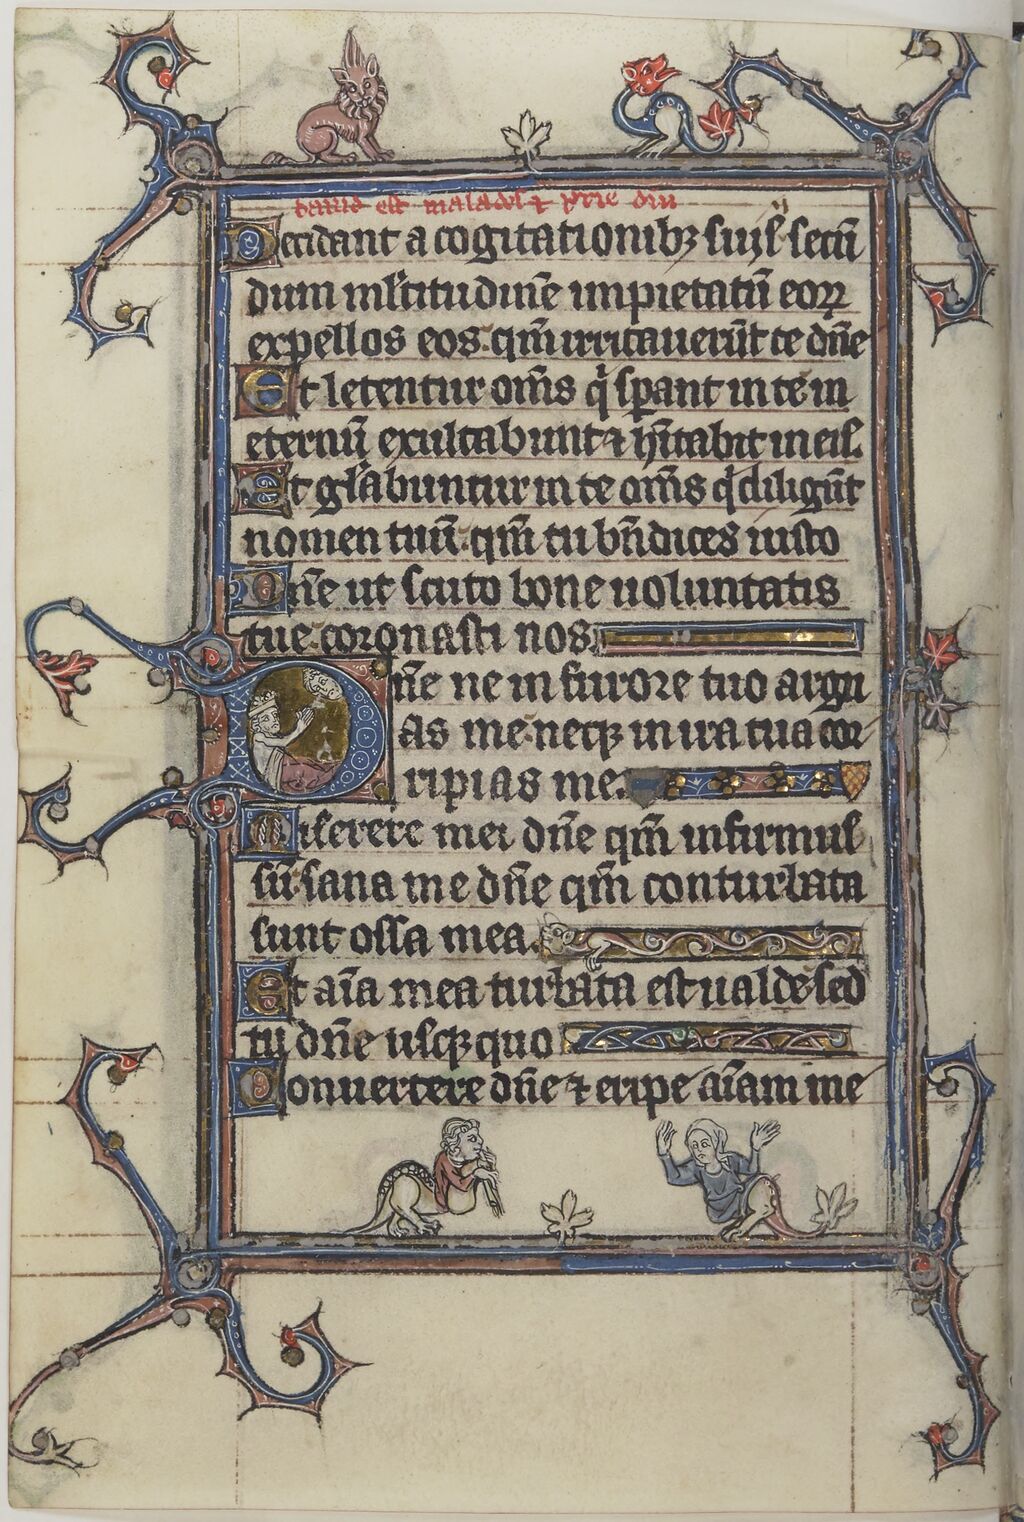 dauid est malades ⁊ prie diu
Decidant a cogitationibꝫ suis secũ
dum mͥltitudinẽ impietatũ eoꝝ
expellos eos qm̃ irritauerũt te dñe
Et letentur om̃s qͥ sꝑant in te in
eternũ exultabunt ⁊ hĩtabit in eis
Et gl̃abuntur in te om̃s qͥ diligũt
nomen tuũ qm̃ tu bñdices iusto
Dñe ut scuto bone uoluntatis
tue coronasti nos
Dñe ne in furore tuo argu
as me neqꝫ in ira tua cor
ripias me.
Miserere mei dñe qm̃ infirmus
sũ sana me dñe qm̃ conturbata
sunt ossa mea.
Et aĩa mea turbata est ualde sed
tu dñe usqꝫ quo
Conuertere dñe ⁊ eripe aĩam me